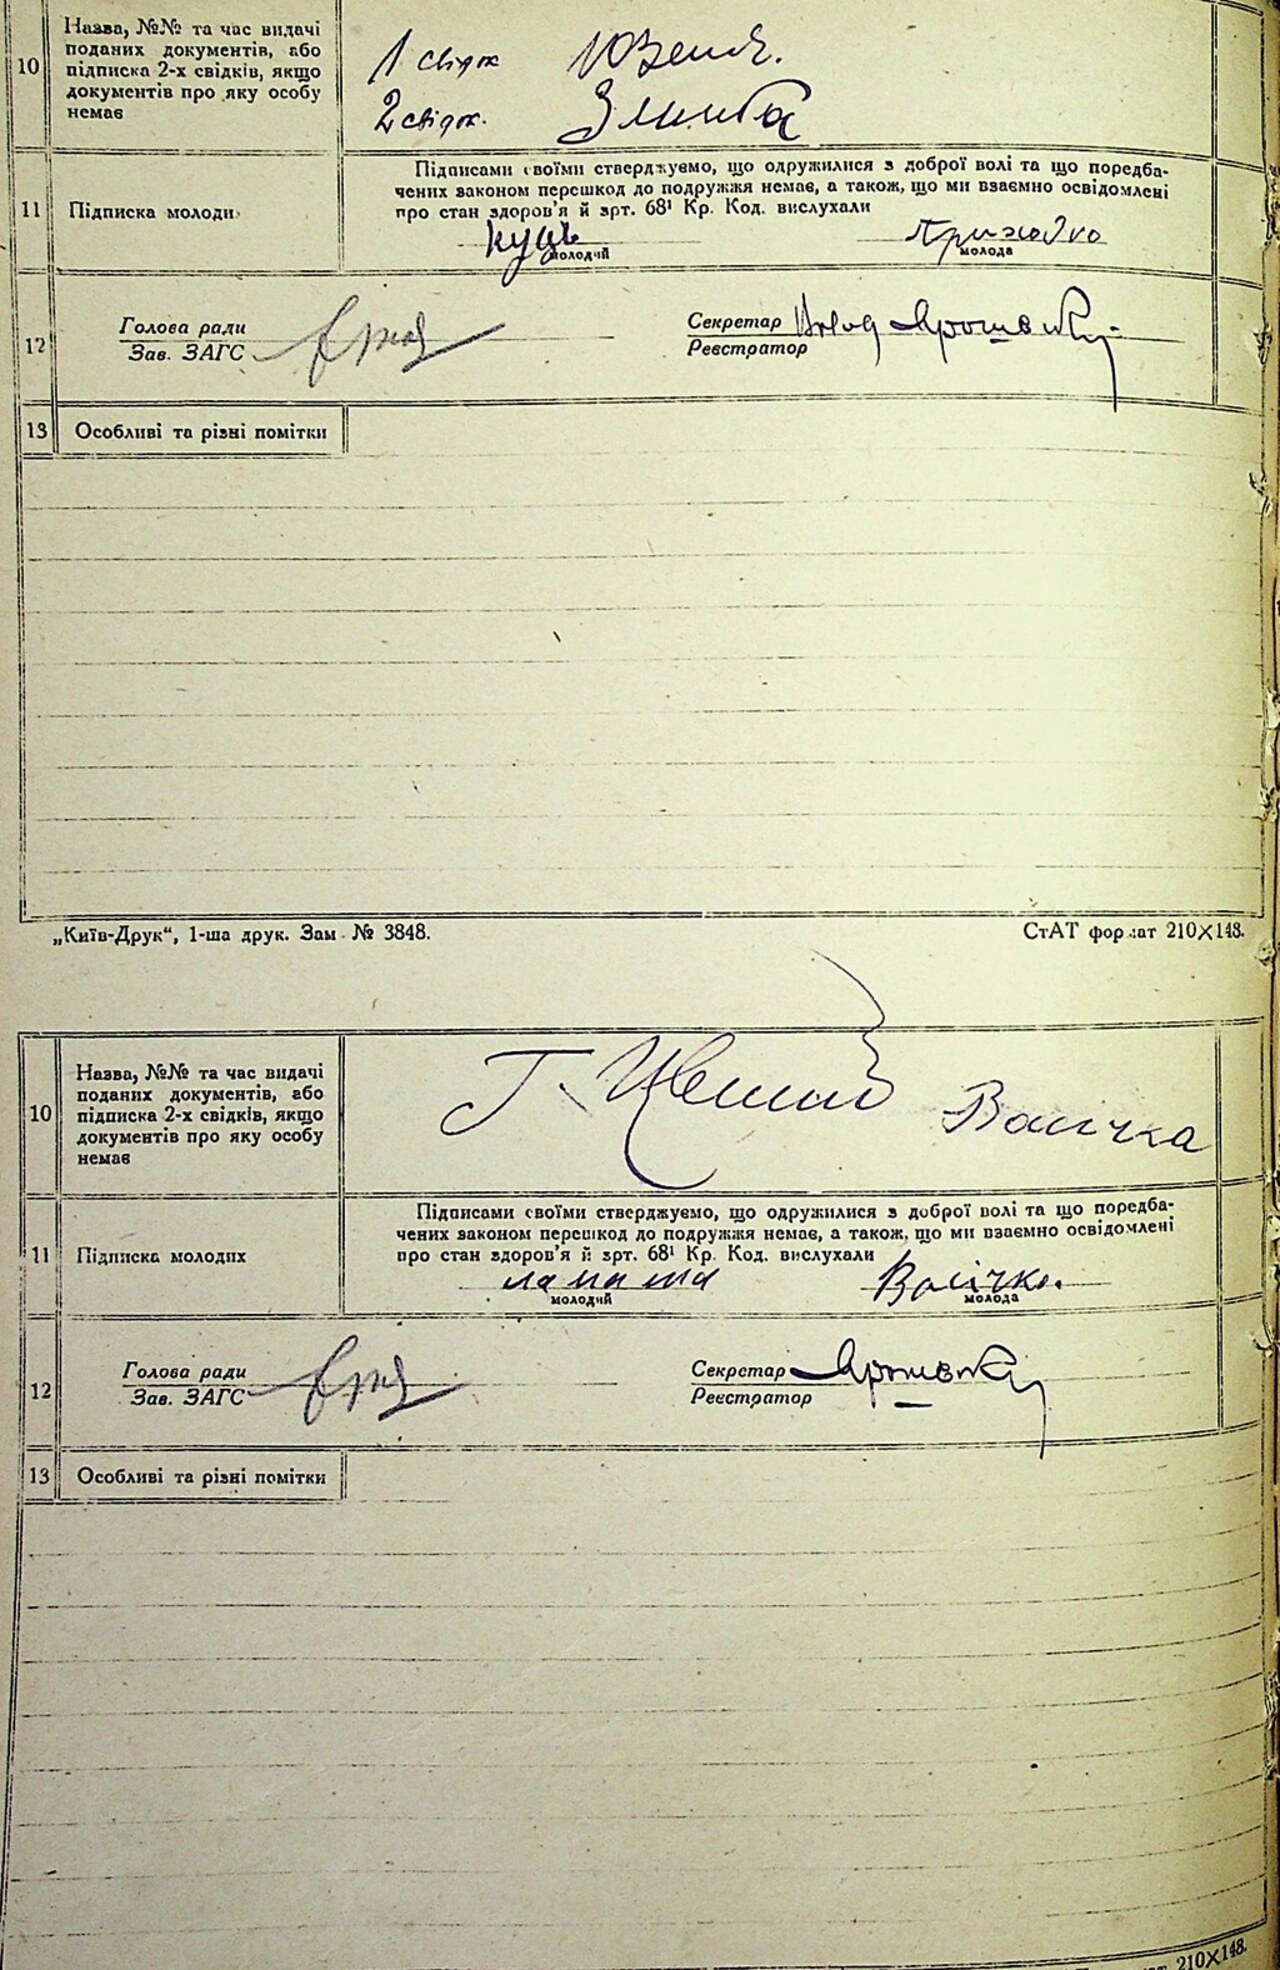 10
Назва, №№ та час видачі
поданих документів, або
підписка 2-х свідків, якщо
документів про яку особу
немає
1 свідок
2 свідок.
11
Підписка молоди
Підписами своїми стверджуємо, що одружилися з доброї волі та що поредба-
чених законом перешкод до подружжя немає, а також, що ми взаємно освідомлені
про стан здоров'я й арт. 68¹ Кр. Код. вислухали
молодий
Приходко
молода
12
Голова ради
Зав. ЗАГС
Секретар
Реєстратор
13
Особливі та різні помітки
„Київ-Друк“, 1-ша друк. Зам. № 3848.
СтАТ формат 210×148.
10
Назва, №№ та час видачі
поданих документів, або
підписка 2-х свідків, якщо
документів про яку особу
немає
Васічка
11
Підписка молодих
Підписами своїми стверджуємо, що одружилися з доброї волі та що поредба-
чених законом перешкод до подружжя немає, а також, що ми взаємно освідомлені
про стан здоров'я й арт. 68¹ Кр. Код. вислухали
молодий
молода
12
Голова ради
Зав. ЗАГС
Секретар
Реєстратор
13
Особливі та різні помітки
210×148.